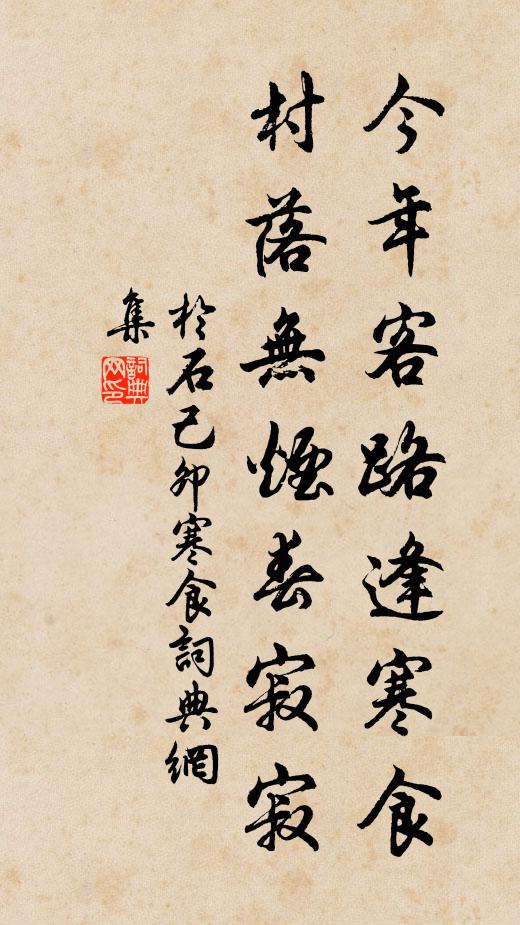 今年客路逢寒食
村落無煙春寂寂
於石己卯寒食詞典網
集
詞典網印